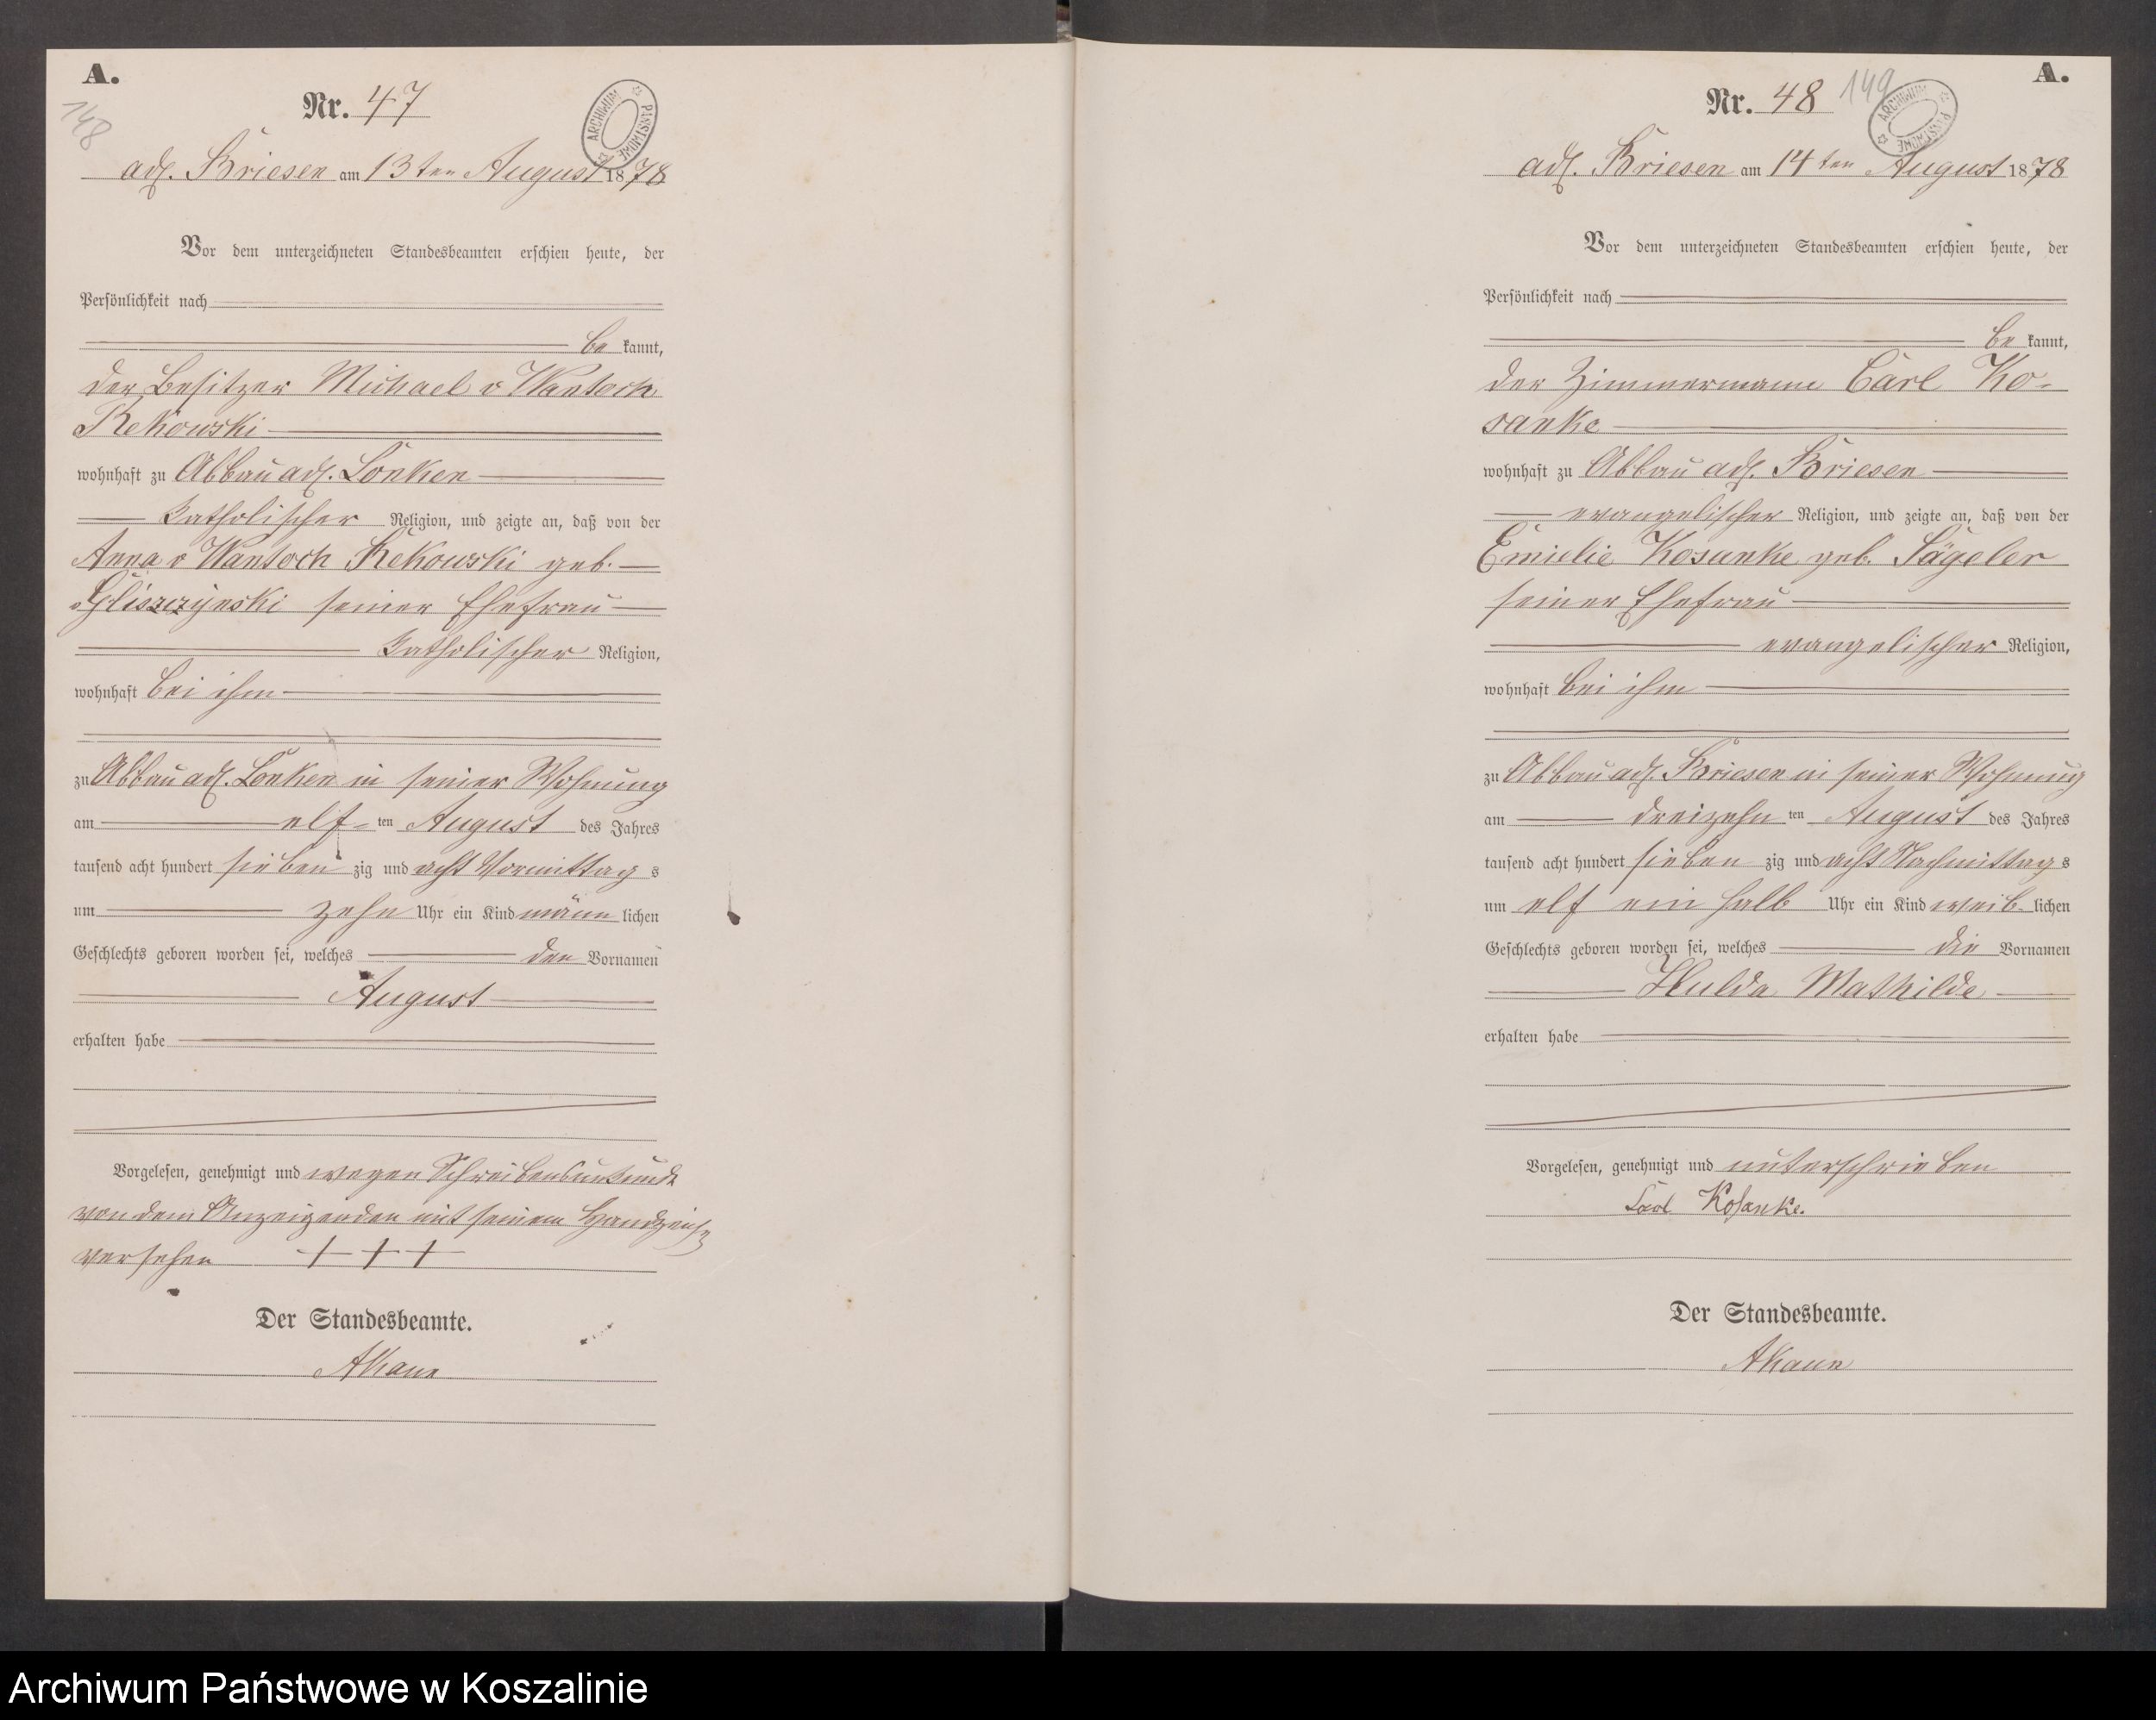 A.
148
Nr. 47
ARCHIWUM PAŃSTWOWE
adl. Briesen am 13ten August 1878
Vor dem unterzeichneten Standesbeamten erschien heute, der
Persönlichkeit nach
be kannt,
der Besitzer Michael v Wantoch
Rekowski
wohnhaft zu Abbau adl. Lonken
katholischer Religion, und zeigte an, daß von der
Anna v Wantoch Rekowski geb.
v Gliszczynski seiner Ehefrau
katholischer Religion,
wohnhaft bei ihm
zu Abbau adl. Lonken in seiner Wohnung
am elf-ten August des Jahres
tausend acht hundert sieben zig und acht Vormittag s
um zehn Uhr ein Kind männ lichen
Geschlechts geboren worden sei, welches den Vornamen
August
erhalten habe
Vorgelesen, genehmigt und wegen Schreibensunkunde
von dem Anzeigenden mit seinem Handzeichen
versehen + + +
Der Standesbeamte.
A.
Nr. 48
149
ARCHIWUM PAŃSTWOWE
adl. Briesen am 14ten August 1878
Vor dem unterzeichneten Standesbeamten erschien heute, der
Persönlichkeit nach
be kannt,
der Zimmermann Carl Ko-
sanke
wohnhaft zu Abbau adl. Briesen
evangelischer Religion, und zeigte an, daß von der
Emielie Kosanke geb. Sägeler
seiner Ehefrau
evangelischer Religion,
wohnhaft bei ihm
zu Abbau adl. Briesen in seiner Wohnung
am dreizehn ten August des Jahres
tausend acht hundert sieben zig und acht Nachmittag s
um elf ein halb Uhr ein Kind weib-lichen
Geschlechts geboren worden sei, welches die Vornamen
Hulda Mathilde
erhalten habe
Vorgelesen, genehmigt und unterschrieben
Carl Kosanke.
Der Standesbeamte.
Archiwum Państwowe w Koszalinie